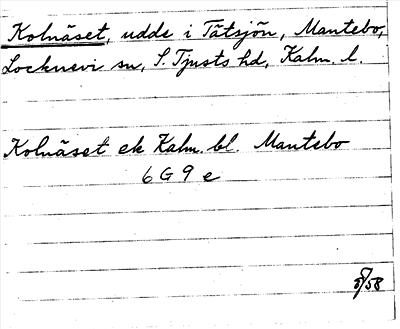 Kolnäset, udde i Tätsjön, Mantebo,
Locknevi sn, S. Tjusts hd, Kalm. l.
Kolnäset ek Kalm. bl. Mantebo
6 G 9 e
/58